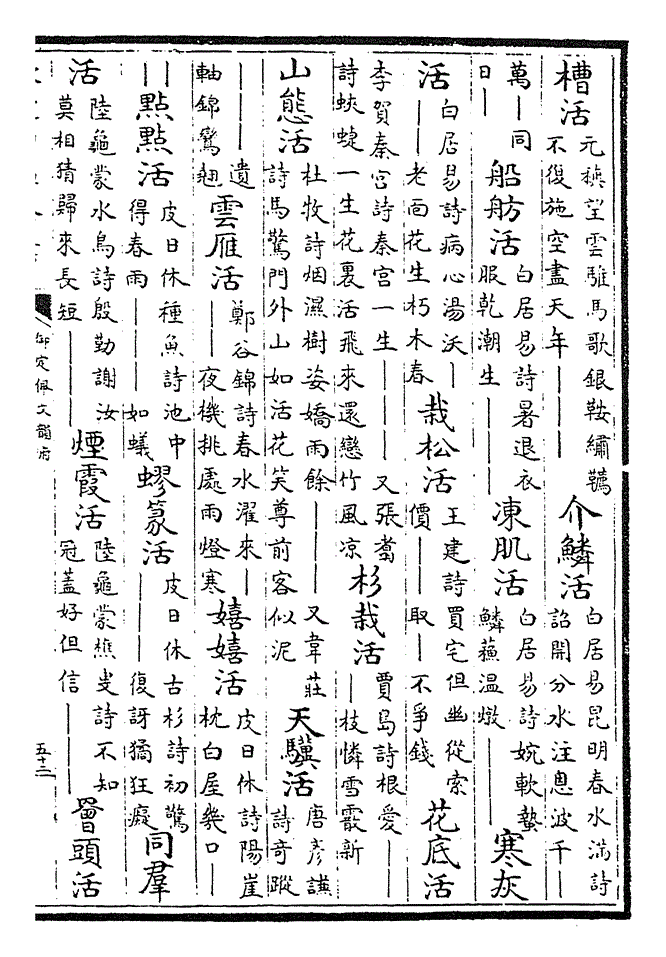 槽活
元稹望雲騅馬歌銀鞍繡韉
不復施空盡天年——
介鱗活
白居易昆明春水滿詩
詔開分水注恩波千——
萬——同
日——
船舫活
白居易詩暑退衣
服乾潮生———
凍肌活
白居易詩婉軟蟄
鱗蘓溫燉———
寒灰
活
白居易詩病心湯沃—
——老面花生朽木春
栽松活
王建詩買宅但幽從索
價——取—不爭錢
花底活
李賀秦宮詩秦宮一生———又張蠙
詩蛺蝶一生花裏活飛來還戀竹風凉
杉栽活
賈島詩根愛——
—枝憐雪霰新
山態活
杜牧詩烟濕樹姿嬌雨餘———又韋莊
詩馬驚門外山如活花笑尊前客似泥
天驥活
唐彥謙
詩奇蹤
———遺
軸錦鸞翹
雲雁活
鄭谷錦詩春水濯來——
—夜機挑處雨燈寒
嬉嬉活
皮日休詩陽崖
枕白屋幾口—
——
點點活
皮日休種魚詩池中
得春雨———如蟻
蟉篆活
皮日休古杉詩初驚
———復訝猘狂癡
同羣
活
陸龜蒙水鳥詩殷勤謝汝
莫相猜歸來長短———
煙霞活
陸龜蒙樵叟詩不知
冠蓋好但信———
罾頭活
御定佩文韻府
五十三